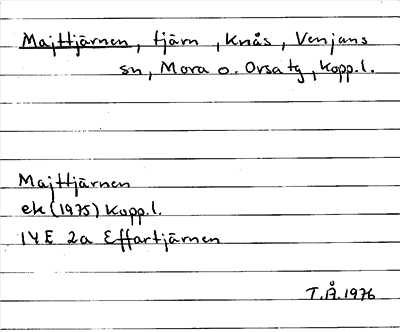 Majttjärnen, tjärn, Knås, Venjans
sn, Mora o. Orsa tg, Kopp.l.
Majttjärnen
ek (1975) Kopp.l.
14E 2a Effartjärnen
T.Å. 1976